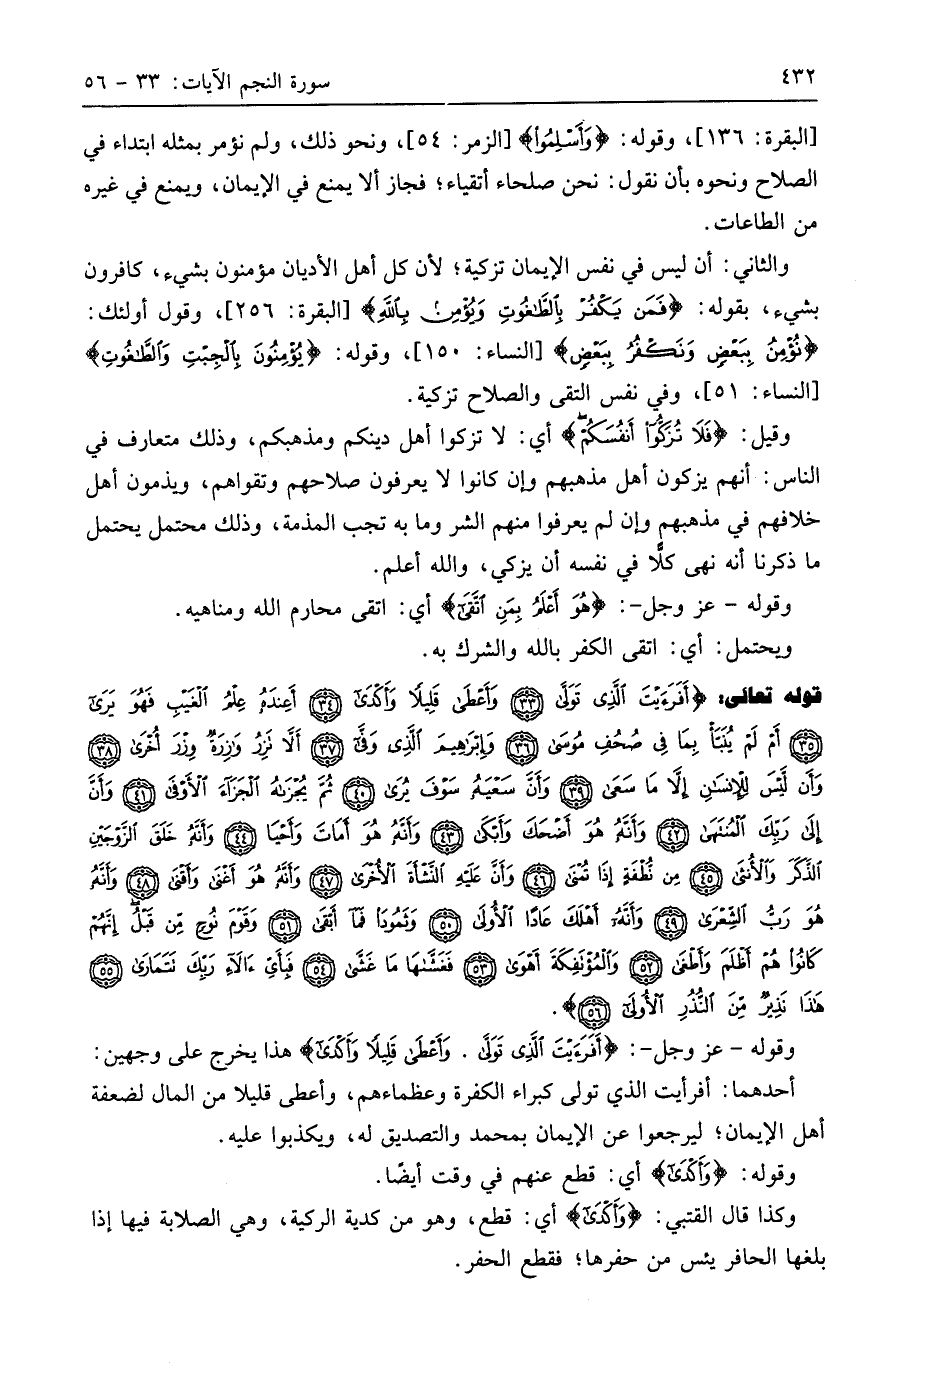 ٤٣٢
سورة النجم الآيات: ٣٣ - ٥٦
[البقرة: ١٣٦]، وقوله: ﴿وَأَسْلِمُوا۟﴾ [الزمر: ٥٤]، ونحو ذلك، ولم نؤمر بمثله ابتداء في
الصلاح ونحوه بأن نقول: نحن صلحاء أتقياء؛ فجاز ألا يمنع في الإيمان، ويمنع في غيره
من الطاعات.
والثاني: أن ليس في نفس الإيمان تزكية؛ لأن كل أهل الأديان مؤمنون بشيء، كافرون
بشيء، بقوله: ﴿فَمَن يَكْفُرْ بِٱلطَّٰغُوتِ وَيُؤْمِنۢ بِٱللَّهِ﴾ [البقرة: ٢٥٦]، وقول أولئك:
﴿نُؤْمِنُ بِبَعْضٍ وَنَكْفُرُ بِبَعْضٍ﴾ [النساء: ١٥٠]، وقوله: ﴿يُؤْمِنُونَ بِٱلْجِبْتِ وَٱلطَّٰغُوتِ﴾
[النساء: ٥١]، وفي نفس التقى والصلاح تزكية.
وقيل: ﴿فَلَا تُزَكُّوٓا۟ أَنفُسَكُمْ ۖ﴾ أي: لا تزكوا أهل دينكم ومذهبكم، وذلك متعارف في
الناس: أنهم يزكون أهل مذهبهم وإن كانوا لا يعرفون صلاحهم وتقواهم، ويذمون أهل
خلافهم في مذهبهم وإن لم يعرفوا منهم الشر وما به تجب المذمة، وذلك محتمل يحتمل
ما ذكرنا أنه نهى كلًّا في نفسه أن يزكي، والله أعلم.
وقوله - عز وجل-: ﴿هُوَ أَعْلَمُ بِمَنِ ٱتَّقَىٰٓ﴾ أي: اتقى محارم الله ومناهيه.
ويحتمل: أي: اتقى الكفر بالله والشرك به.
قوله تعالى: ﴿أَفَرَءَيْتَ ٱلَّذِى تَوَلَّىٰ ٣٣ وَأَعْطَىٰ قَلِيلًا وَأَكْدَىٰٓ ٣٤ أَعِندَهُۥ عِلْمُ ٱلْغَيْبِ فَهُوَ يَرَىٰٓ
٣٥ أَمْ لَمْ يُنَبَّأْ بِمَا فِى صُحُفِ مُوسَىٰ ٣٦ وَإِبْرَٰهِيمَ ٱلَّذِى وَفَّىٰٓ ٣٧ أَلَّا تَزِرُ وَازِرَةٌ وِزْرَ أُخْرَىٰ ٣٨
وَأَن لَّيْسَ لِلْإِنسَٰنِ إِلَّا مَا سَعَىٰ ٣٩ وَأَنَّ سَعْيَهُۥ سَوْفَ يُرَىٰ ٤٠ ثُمَّ يُجْزَىٰهُ ٱلْجَزَآءَ ٱلْأَوْفَىٰ ٤١ وَأَنَّ
إِلَىٰ رَبِّكَ ٱلْمُنتَهَىٰ ٤٢ وَأَنَّهُۥ هُوَ أَضْحَكَ وَأَبْكَىٰ ٤٣ وَأَنَّهُۥ هُوَ أَمَاتَ وَأَحْيَا ٤٤ وَأَنَّهُۥ خَلَقَ ٱلزَّوْجَيْنِ
ٱلذَّكَرَ وَٱلْأُنثَىٰ ٤٥ مِن نُّطْفَةٍ إِذَا تُمْنَىٰ ٤٦ وَأَنَّ عَلَيْهِ ٱلنَّشْأَةَ ٱلْأُخْرَىٰ ٤٧ وَأَنَّهُۥ هُوَ أَغْنَىٰ وَأَقْنَىٰ ٤٨ وَأَنَّهُۥ
هُوَ رَبُّ ٱلشِّعْرَىٰ ٤٩ وَأَنَّهُۥٓ أَهْلَكَ عَادًا ٱلْأُولَىٰ ٥٠ وَثَمُودَا۟ فَمَآ أَبْقَىٰ ٥١ وَقَوْمَ نُوحٍ مِّن قَبْلُ ۖ إِنَّهُمْ
كَانُوا۟ هُمْ أَظْلَمَ وَأَطْغَىٰ ٥٢ وَٱلْمُؤْتَفِكَةَ أَهْوَىٰ ٥٣ فَغَشَّىٰهَا مَا غَشَّىٰ ٥٤ فَبِأَىِّ ءَالَآءِ رَبِّكَ تَتَمَارَىٰ ٥٥
هَٰذَا نَذِيرٌ مِّنَ ٱلنُّذُرِ ٱلْأُولَىٰٓ ٥٦﴾.
وقوله - عز وجل-: ﴿أَفَرَءَيْتَ ٱلَّذِى تَوَلَّىٰ . وَأَعْطَىٰ قَلِيلًا وَأَكْدَىٰٓ﴾ هذا يخرج على وجهين:
أحدهما: أفرأيت الذي تولى كبراء الكفرة وعظماءهم، وأعطى قليلا من المال لضعفة
أهل الإيمان؛ ليرجعوا عن الإيمان بمحمد والتصديق له، ويكذبوا عليه.
وقوله: ﴿وَأَكْدَىٰٓ﴾ أي: قطع عنهم في وقت أيضًا.
وكذا قال القتبي: ﴿وَأَكْدَىٰٓ﴾ أي: قطع، وهو من كدية الركية، وهي الصلابة فيها إذا
بلغها الحافر يئس من حفرها؛ فقطع الحفر.